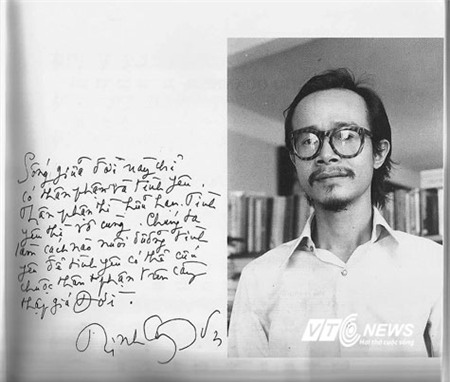 Sống giữa đời này chỉ
có thân phận và tình yêu.
Thân phận thì hữu hạn. Tình
yêu thì vô cùng. Chúng ta
làm cách nào nuôi dưỡng tình
yêu để tình yêu có thể cứu
chuộc thân phận trên cây
thập giá Đời.
VTC NEWS
Hơi thở cuộc sống